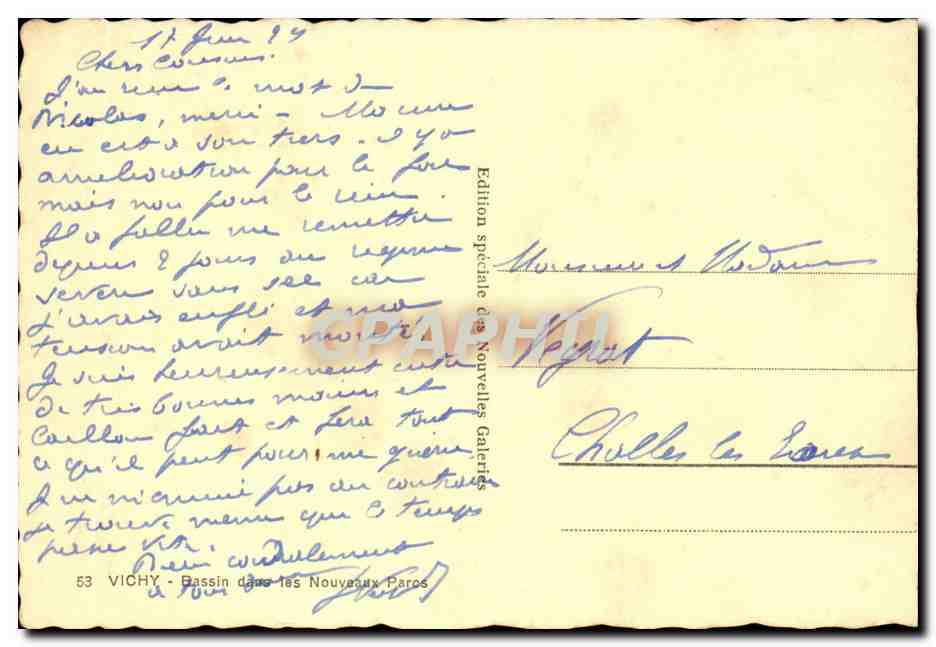 17 Juin
Chers Cousins.
J'ai reçu le mot de
Nicolas, merci - Ma cure
en est à son tiers. il y a
amélioration pour le foie
mais non pour le rein.
Il a fallu me remettre
depuis 2 jours au régime
sévère sans sel car
j'avais enflé et ma
tension avait monté.
Je suis heureusement entre
de très bonnes mains et
fait et fera tout
ce qu'il peut pour me guérir.
Je ne m'ennuie pas au contraire
je trouve même que le temps
passe vite.
Bien cordialement
à tous
53 VICHY - Bassin dans les Nouveaux Parcs
Edition spéciale des Nouvelles Galeries
CPAPHIL
Monsieur et Madame
Veyrat
Challes les Eaux